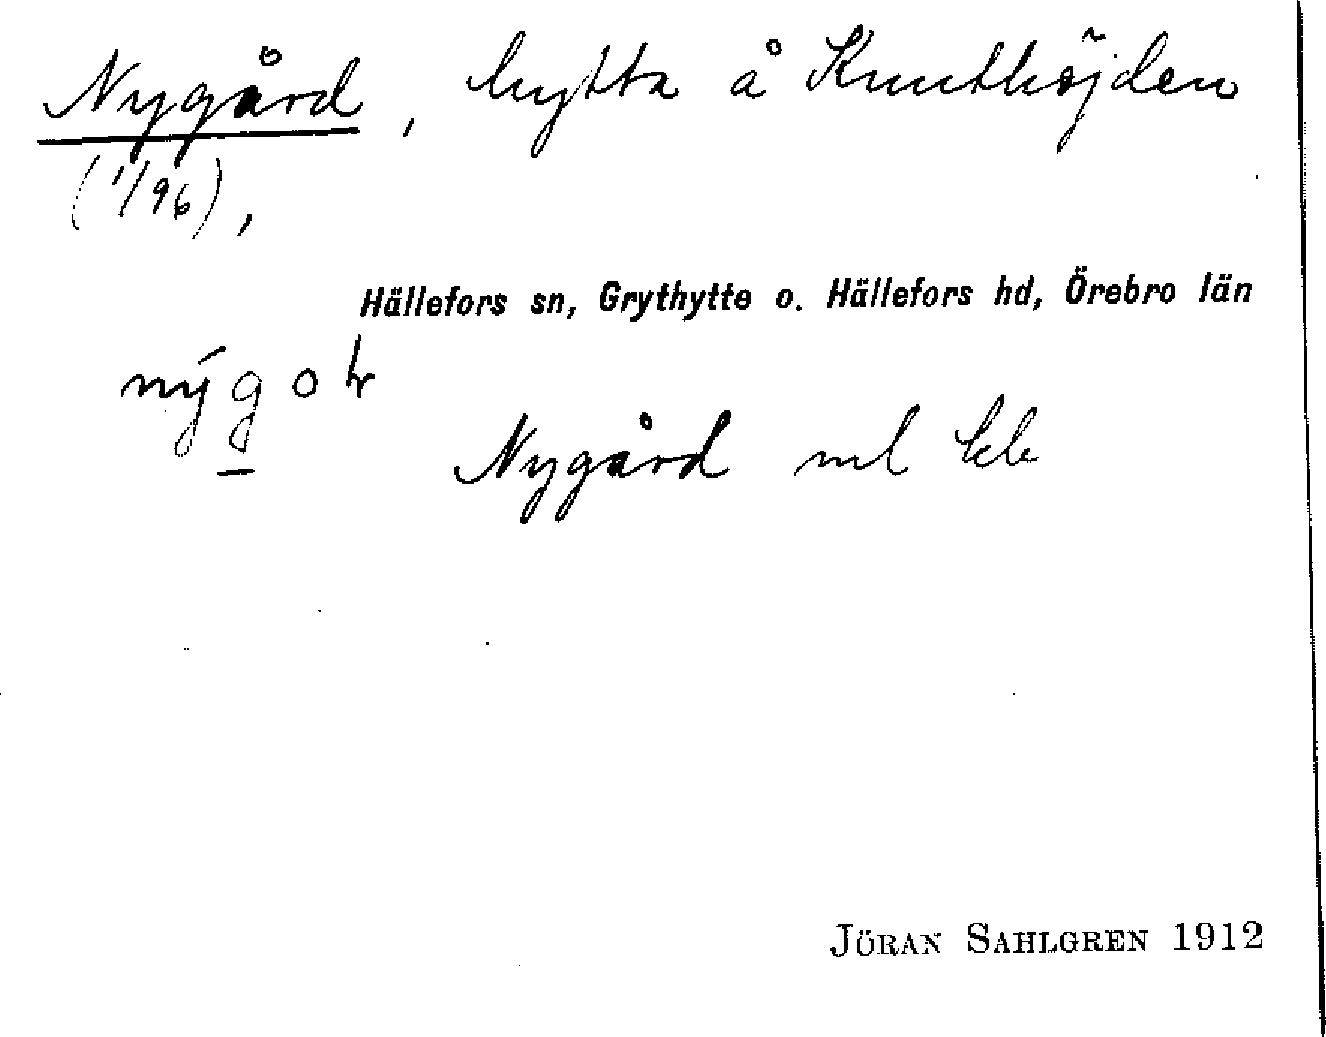 Nygård, hytta å Knuthöjden
(1/96),
Hällefors sn, Grythytte o. Hällefors hd, Örebro län
nýgo
Nygård ml
JÖRAN SAHLGREN 1912